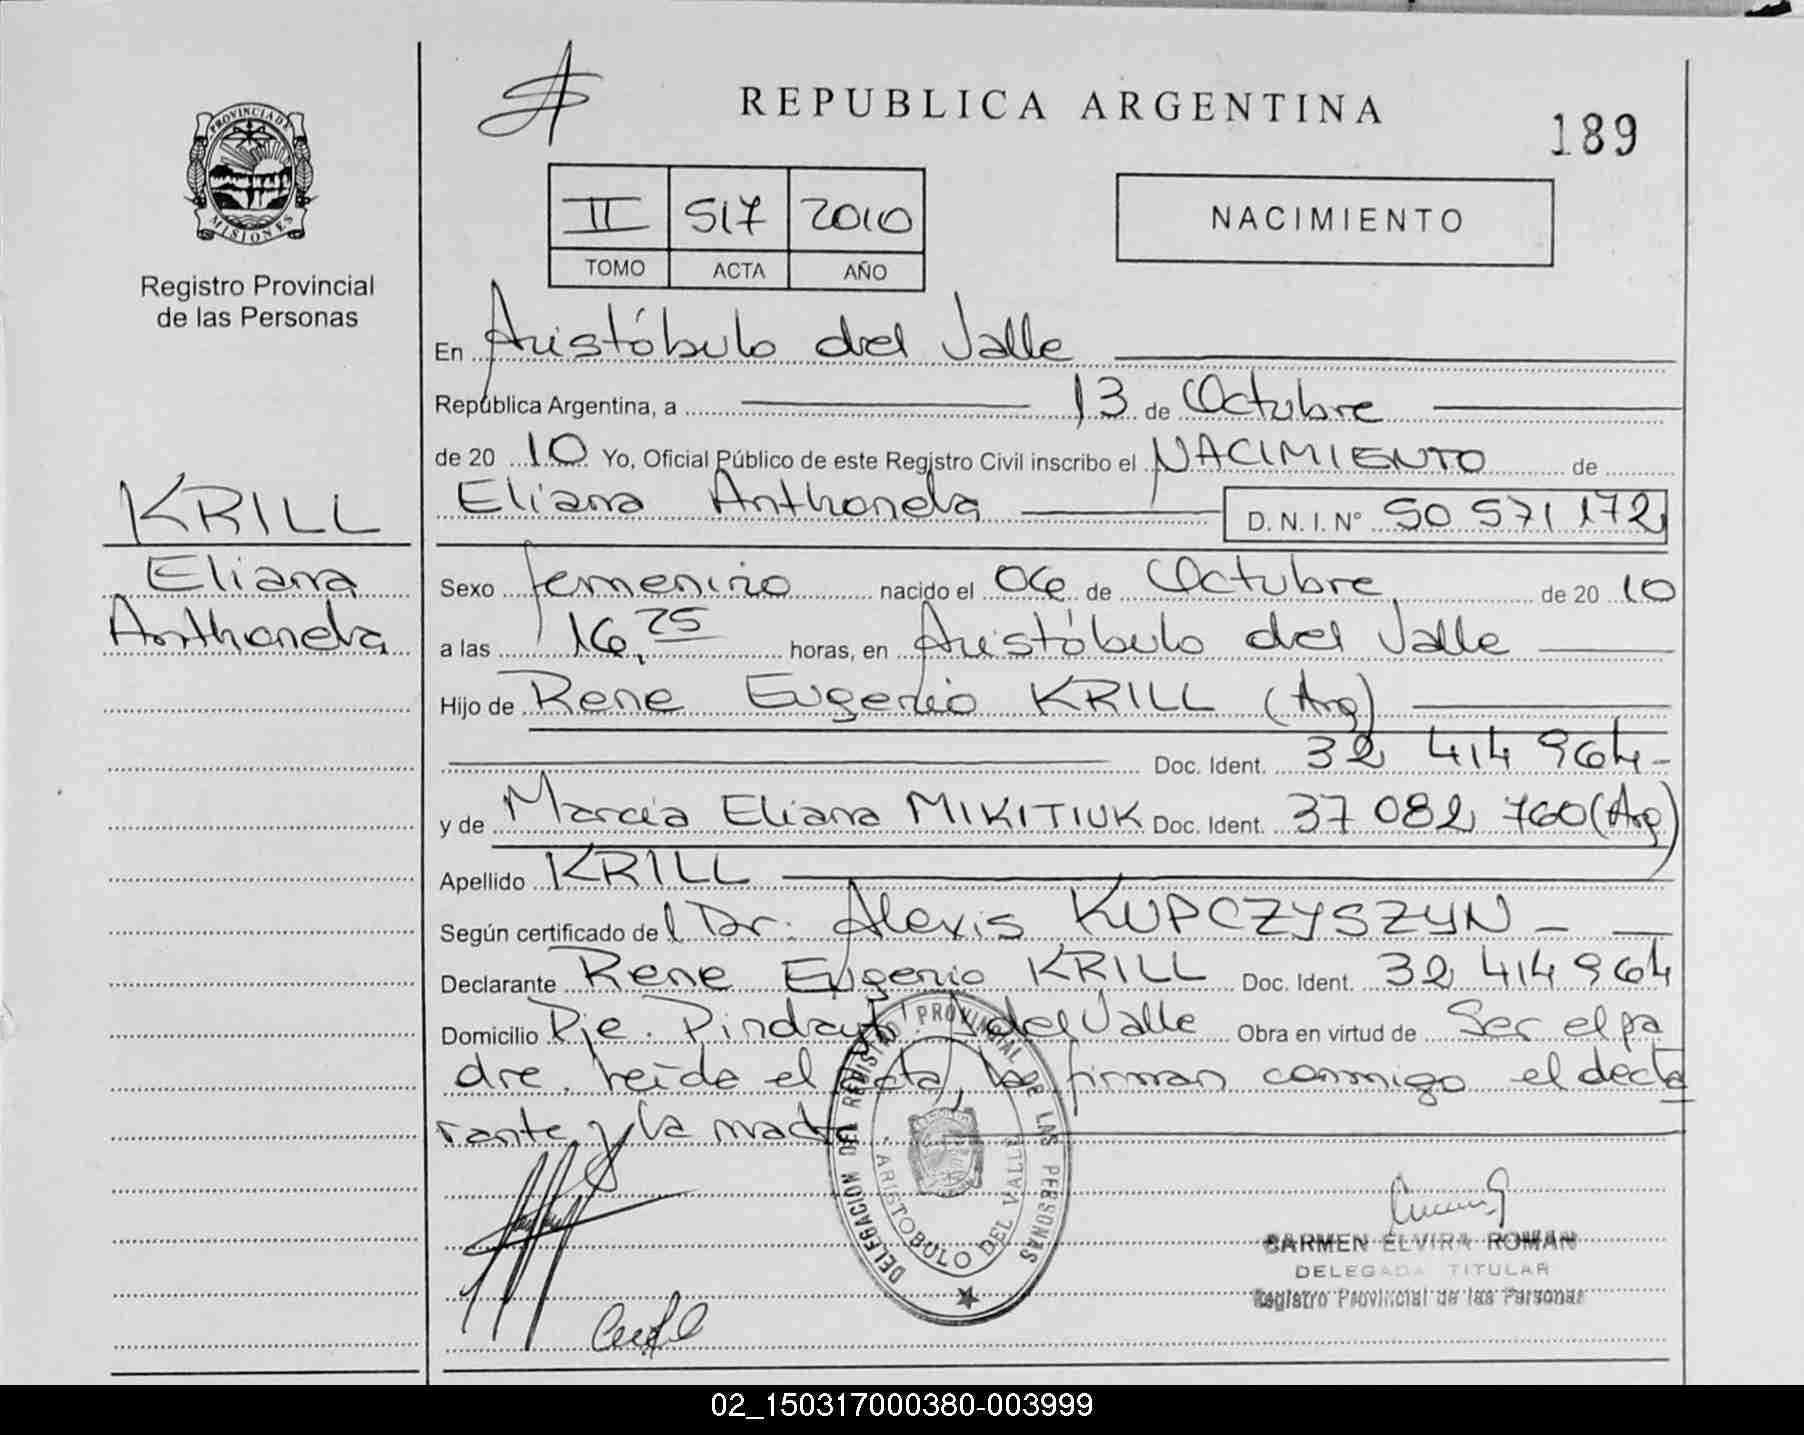 REPUBLICA ARGENTINA
189
PROVINCIA DE
MISIONES
Registro Provincial
de las Personas
II 517 2010
TOMO ACTA AÑO
NACIMIENTO
En Aristóbulo del Valle
República Argentina, a 13 de Octubre
de 20 10 Yo, Oficial Público de este Registro Civil inscribo el NACIMIENTO de
Eliana Anthonela D. N. I. N° 50 571 172
KRILL
Eliana
Anthonela
Sexo femenino nacido el 06 de Octubre de 20 10
a las 16,25 horas, en Aristóbulo del Valle
Hijo de Rene Eugenio KRILL (Arg)
Doc. Ident. 32 414 964-
y de Marcia Eliana MIKITIUK Doc. Ident. 37 082 760 (Arg)
Apellido KRILL
Según certificado del Dr. Alexis KUPCZYSZYN
Declarante Rene Eugenio KRILL Doc. Ident. 32 414 964
Domicilio Pje. Pindayti A del Valle Obra en virtud de Ser el pa
dre. Leída el acta, la firman conmigo el decla
rante y la madre
DELEGACION DEL REGISTRO PROVINCIAL DE LAS PERSONAS
ARISTOBULO DEL VALLE
CARMEN ELVIRA ROMAN
DELEGADA TITULAR
Registro Provincial de las Personas
02_150317000380-003999